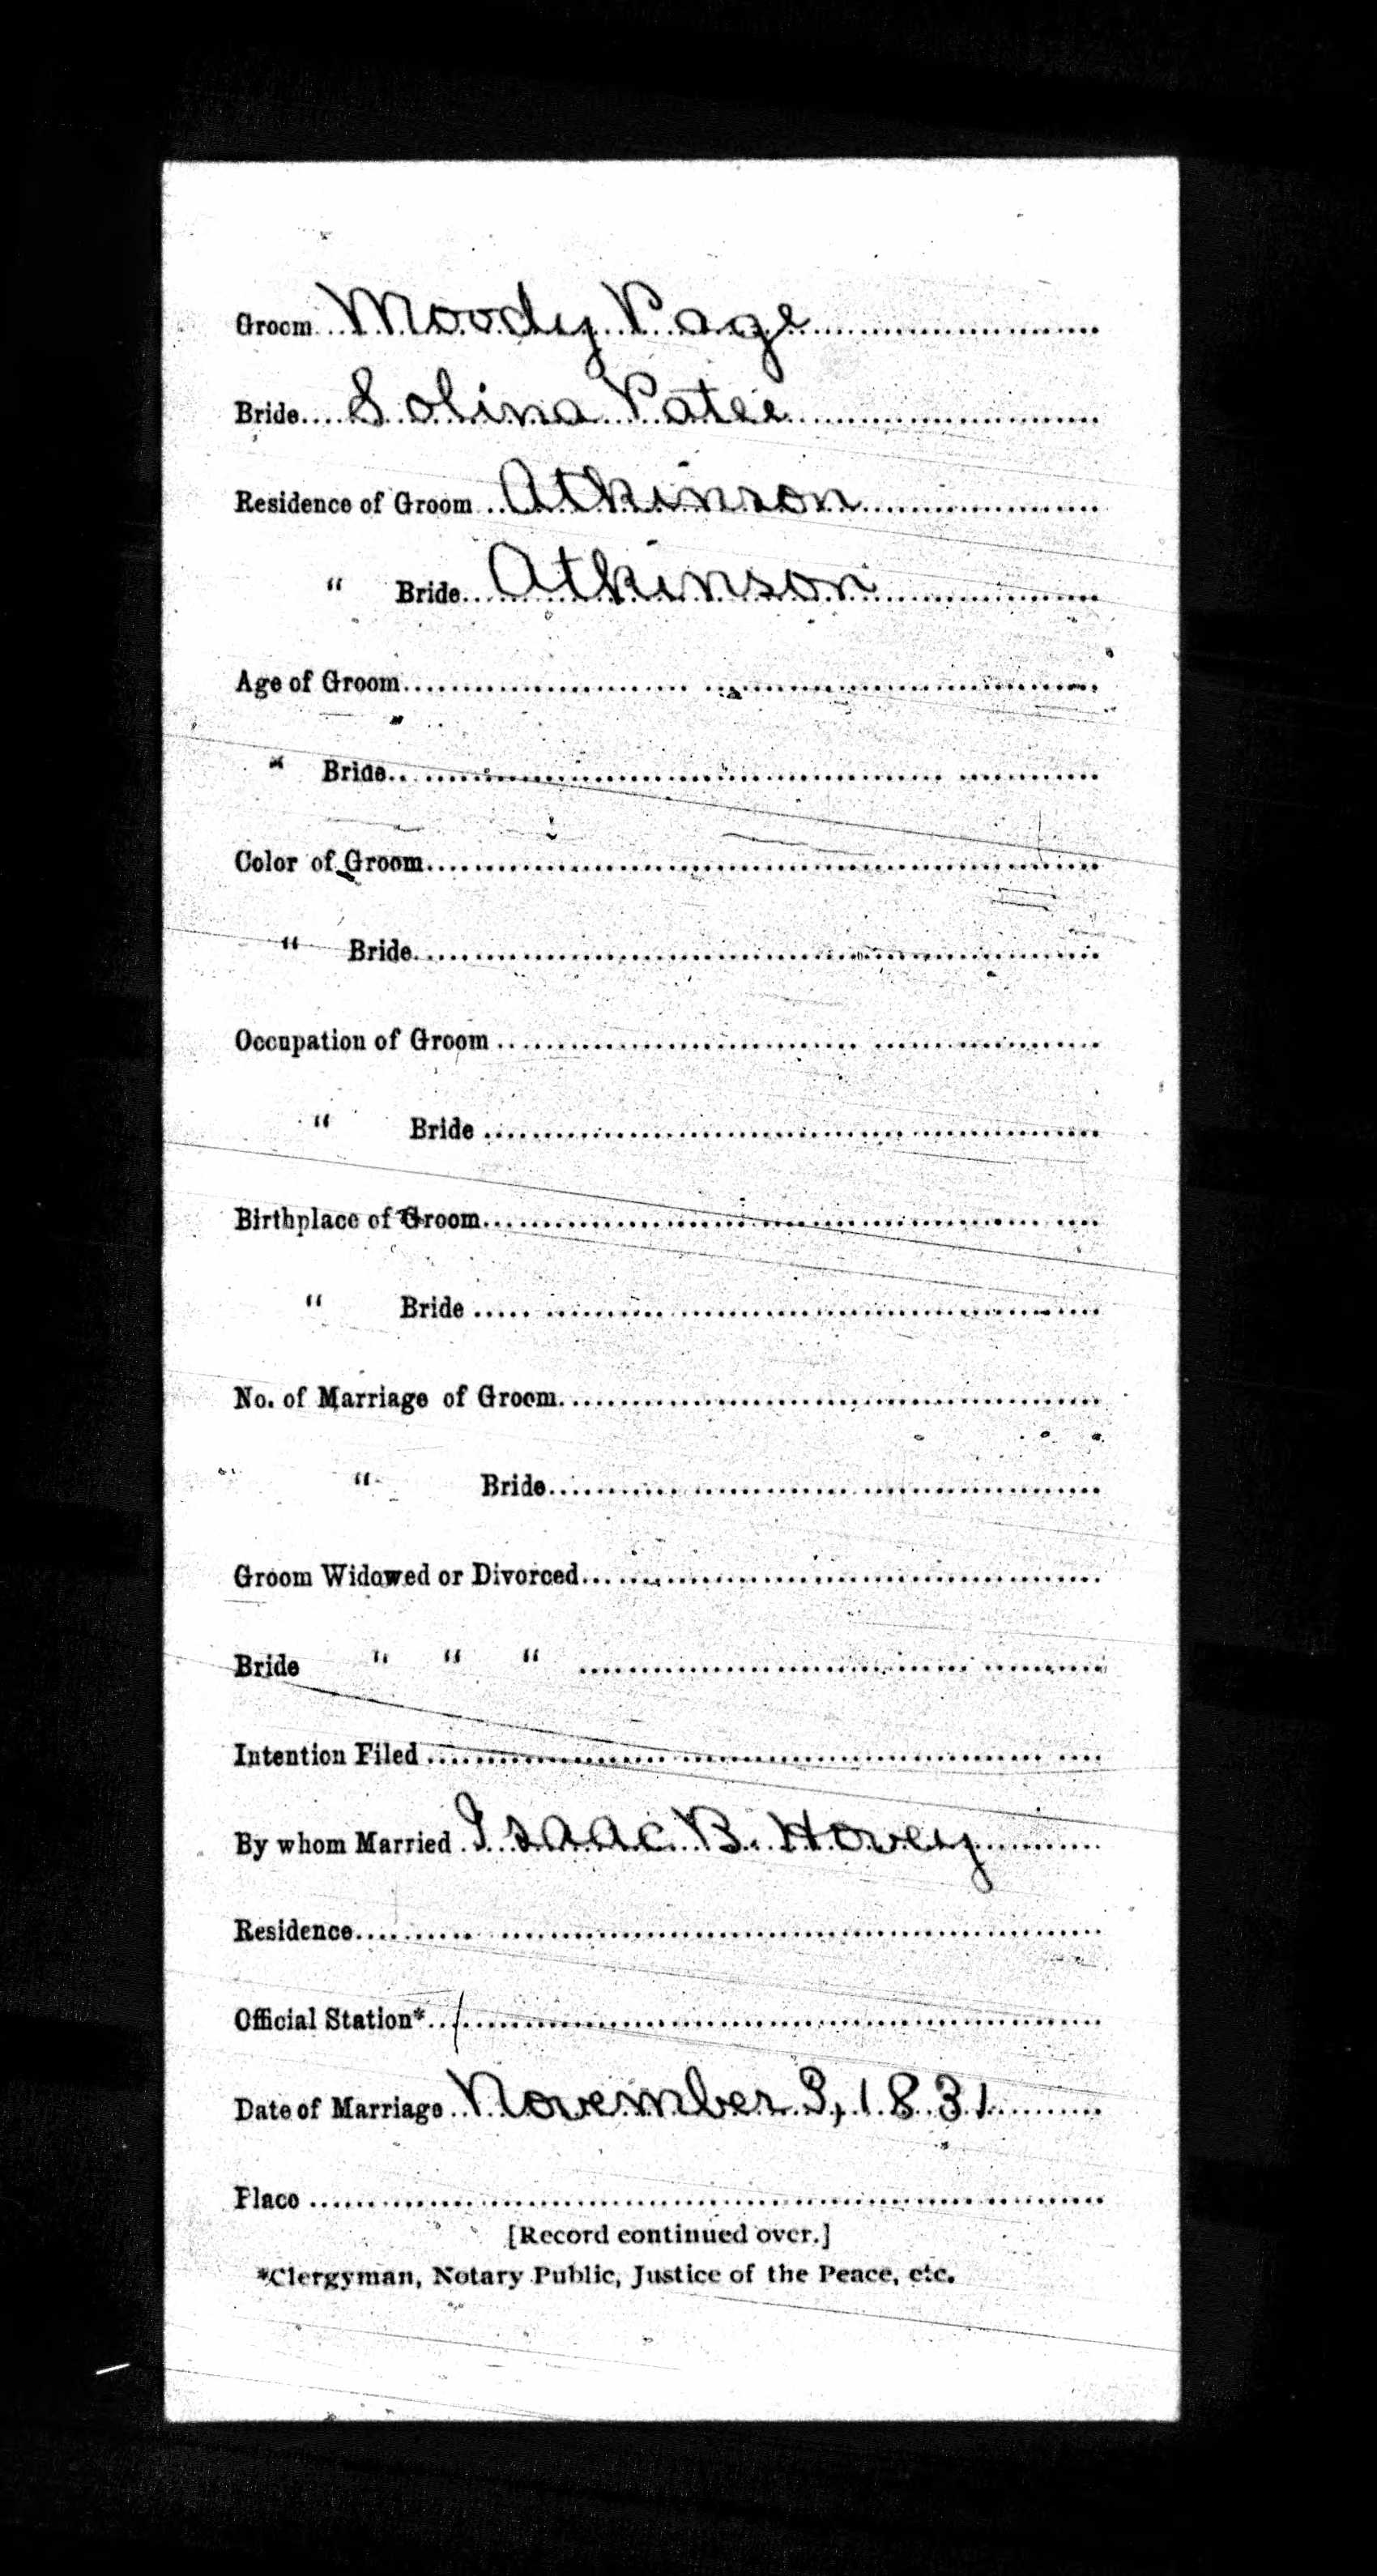 Groom Moody Page
Bride Solina Patee
Residence of Groom Atkinson
" Bride Atkinson
Age of Groom
" Bride
Color of Groom
" Bride
Occupation of Groom
" Bride
Birthplace of Groom
" Bride
No. of Marriage of Groom
" Bride
Groom Widowed or Divorced
Bride " " "
Intention Filed
By whom Married Isaac B. Hovey
Residence
Official Station*
Date of Marriage November 3, 1831
Place
[Record continued over.]
*Clergyman, Notary Public, Justice of the Peace, etc.